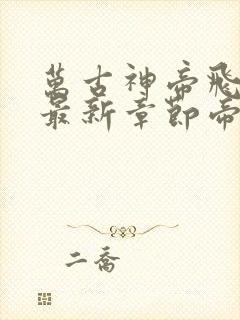 萬古神帝飛
最新章節帝
二喬